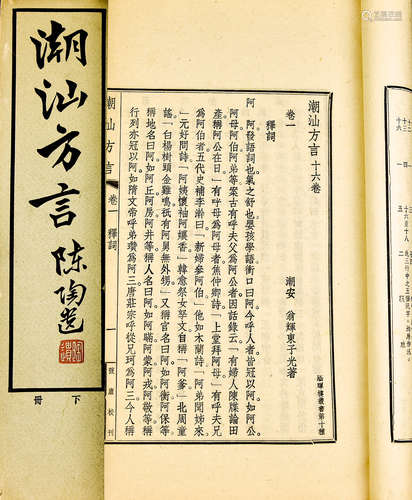 潮汕方言
陳陶遺
下冊
潮汕方言 十六卷
潮安 翁輝東子光著
卷一
釋詞
阿 阿發語詞也氣之舒也嬰孩學語衝口曰阿今呼人者當冠以阿如阿公
阿母阿伯阿弟等案古有呼夫父為阿公者因話錄云有婦人陳牒論田
產稱阿公在日」有呼母為阿母者焦仲卿詩「上堂拜阿母」有呼夫兄
為阿伯者五代史補李澣曰「新婦參阿伯」他如木蘭詩「阿弟聞姊來
」元好問詩「阿姨懷袖阿孃香」韓愈祭女孥文自稱「阿爹」北周童
謠「白楊樹頭金雞鳴祇有阿舅無外甥」又稱官名曰阿如阿衡阿保等
稱地名曰阿如阿丘阿房阿井等稱人名曰阿如阿瞞阿蒙阿戎阿敬等稱
行列亦冠以阿如隋文帝呼弟瓚為阿三唐莊宗呼從兄珂為阿三今人稱
潮汕方言 卷一 釋詞
涵暉樓叢書第十種